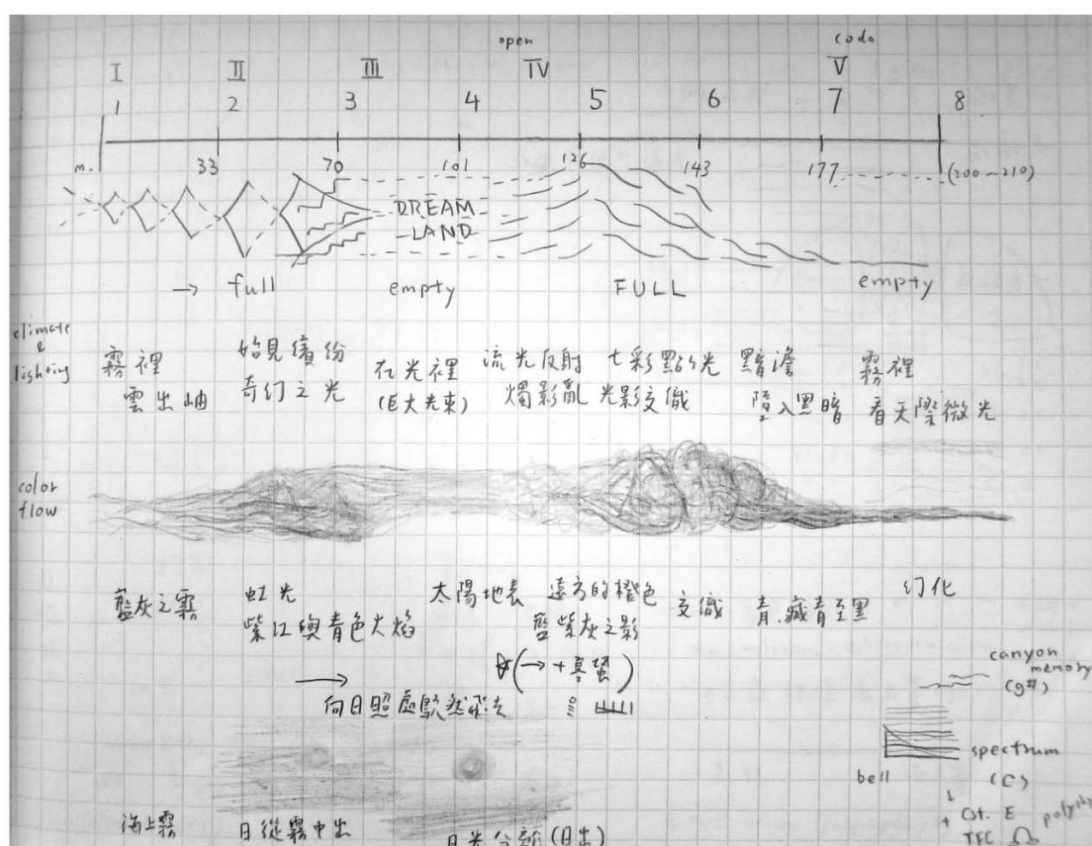 open coda
I II III IV V
1 2 3 4 5 6 7 8
m. 33 70 101 126 143 177 (200~210)
DREAM
LAND
→ full empty FULL empty
climate
&
lighting
霧裡 始見繽紛 在光裡 流光反射 七彩點點光 黯澹 霧裡
雲出岫 奇幻之光 (巨大光束) 燭影亂 光影交織 墮入黑暗 看天際微光
color
flow
藍灰之霧 虹光 太陽地表 遠方的橙色 交織 青.藏青至黑 幻化
紫紅與青色火焰 藍紫灰之影
(→ +
向日照處飄然飛去
canyon
memory
(g#)
spectrum
bell
(C)
+ Cst. E
TFC Ω
海上霧 日從霧中出 (日出)